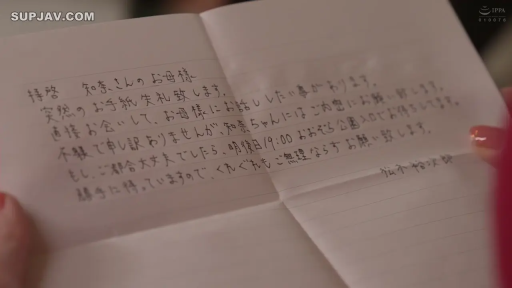 SUPJAV.COM
IPPA
拝啓 知奈さんのお母様
突然のお手紙失礼致します。
直接お会いして、お母様にお話ししたい事があります。
不躾で申し訳ありませんが、知奈ちゃんにはご内密にお願い致します。
もし、ご都合大丈夫でしたら、明後日19:00 おおぞら公園入口でお待ちしてます。
勝手に待っていますので、くれぐれもご無理ならずお願い致します。